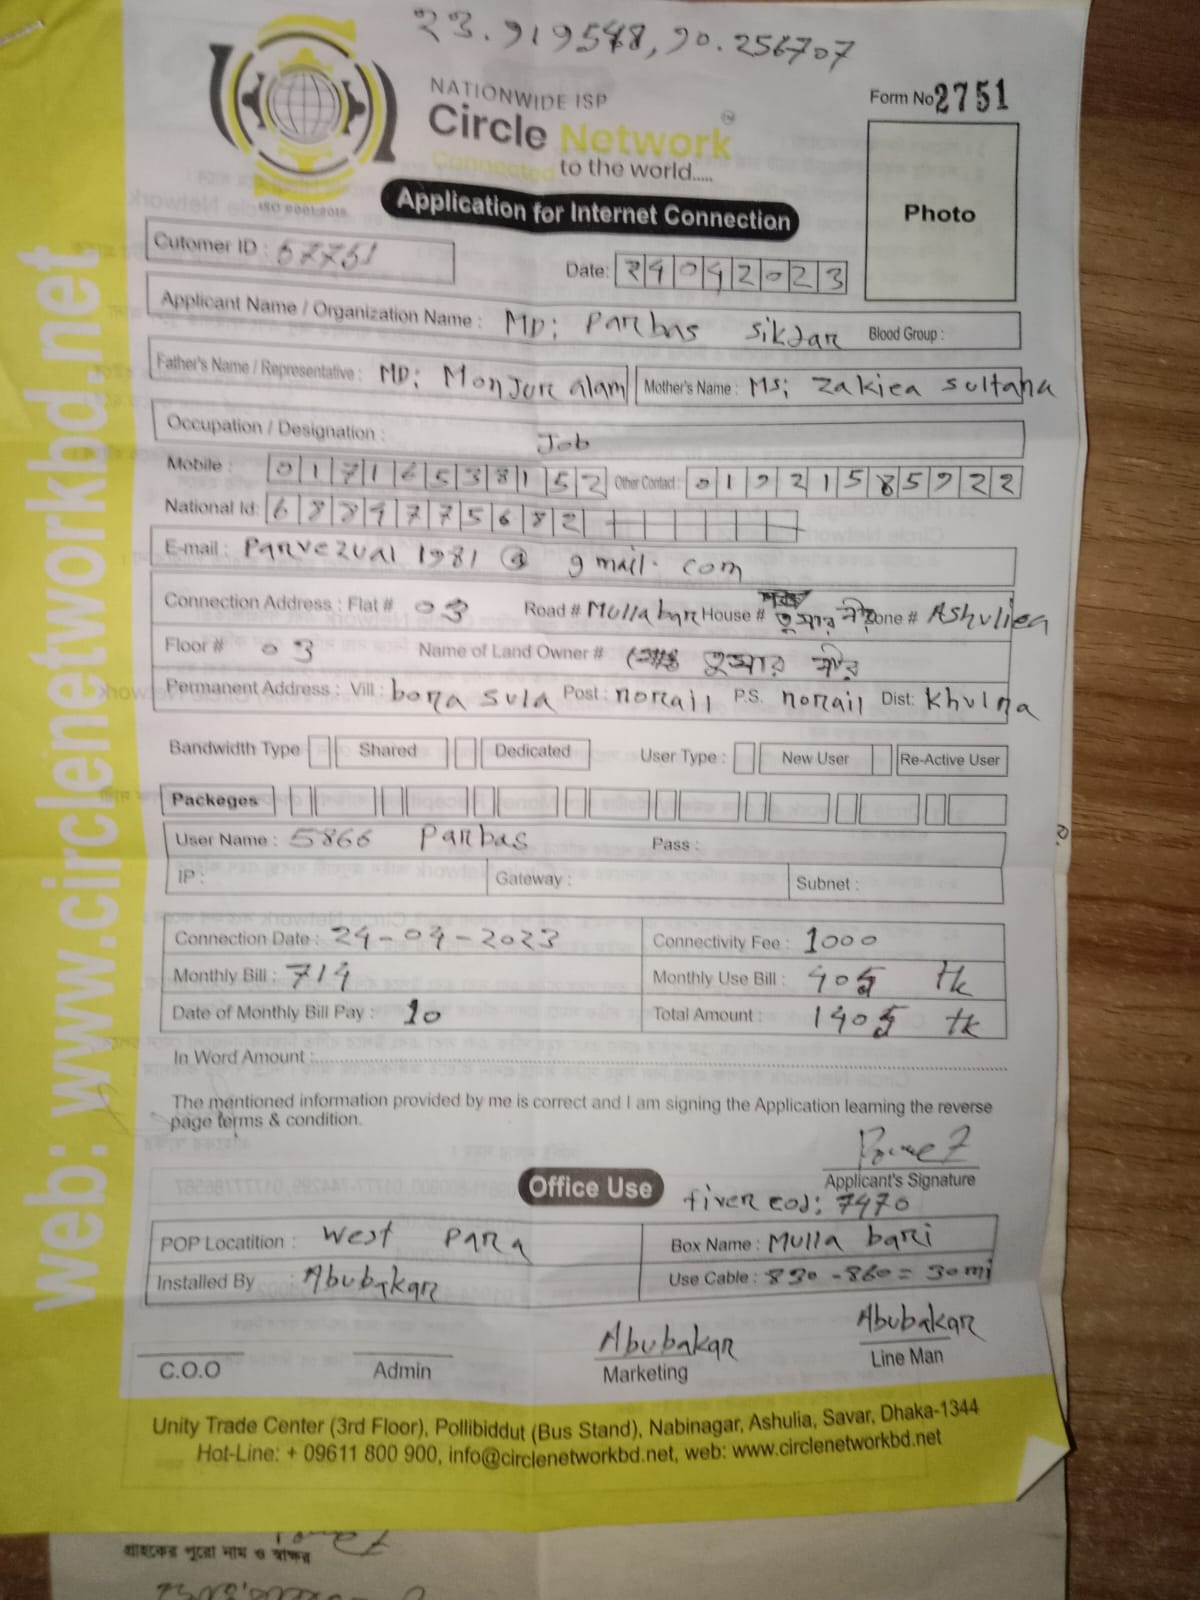 23.919548, 90.256707
NATIONWIDE ISP
Circle Network
Connected to the world.....
ISO 9001:2015
Form No 2751
Photo
Application for Internet Connection
Cutomer ID :
Date: 24042023
Applicant Name / Organization Name : MD: Parbas Sikdar Blood Group :
Father's Name / Representative : MD: Monjur alam Mother's Name : Ms; Zakiea sultana
Occupation / Designation : Job
Mobile : 01716538152 Other Contact : 01921585922
National Id: 6884775682
E-mail : Parvezual1981@gmail.com
Connection Address : Flat # 03 Road # Mulla bari House # তুসার নীড় Zone # Ashuliea
Floor # 03 Name of Land Owner # তুসার
Permanent Address : Vill : bora sula Post : norail P.S. norail Dist: Khulna
Bandwidth Type Shared Dedicated User Type : New User Re-Active User
Packeges
User Name : 5866 Parbas Pass :
IP : Gateway : Subnet :
Connection Date : 24-04-2023 Connectivity Fee : 1000
Monthly Bill : 714 Monthly Use Bill : 405 tk
Date of Monthly Bill Pay : 10 Total Amount : 1405 tk
In Word Amount :
The mentioned information provided by me is correct and I am signing the Application learning the reverse
page terms & condition.
Applicant's Signature
Office Use
fiver cod: 7470
POP Locatition : West Para Box Name : Mulla bari
Installed By : Abubakar Use Cable : 830 - 860 = 30 mi
Abubakar Abubakar
C.O.O Admin Marketing Line Man
Unity Trade Center (3rd Floor), Pollibiddut (Bus Stand), Nabinagar, Ashulia, Savar, Dhaka-1344
Hot-Line: + 09611 800 900, info@circlenetworkbd.net, web: www.circlenetworkbd.net
web: www.circlenetworkbd.net
গ্রাহকের পুরো নাম ও স্বাক্ষর